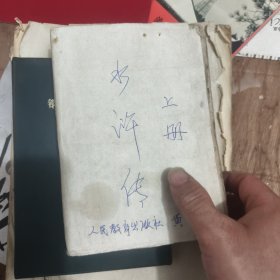 水浒传
上册
人民教育出版社 黄